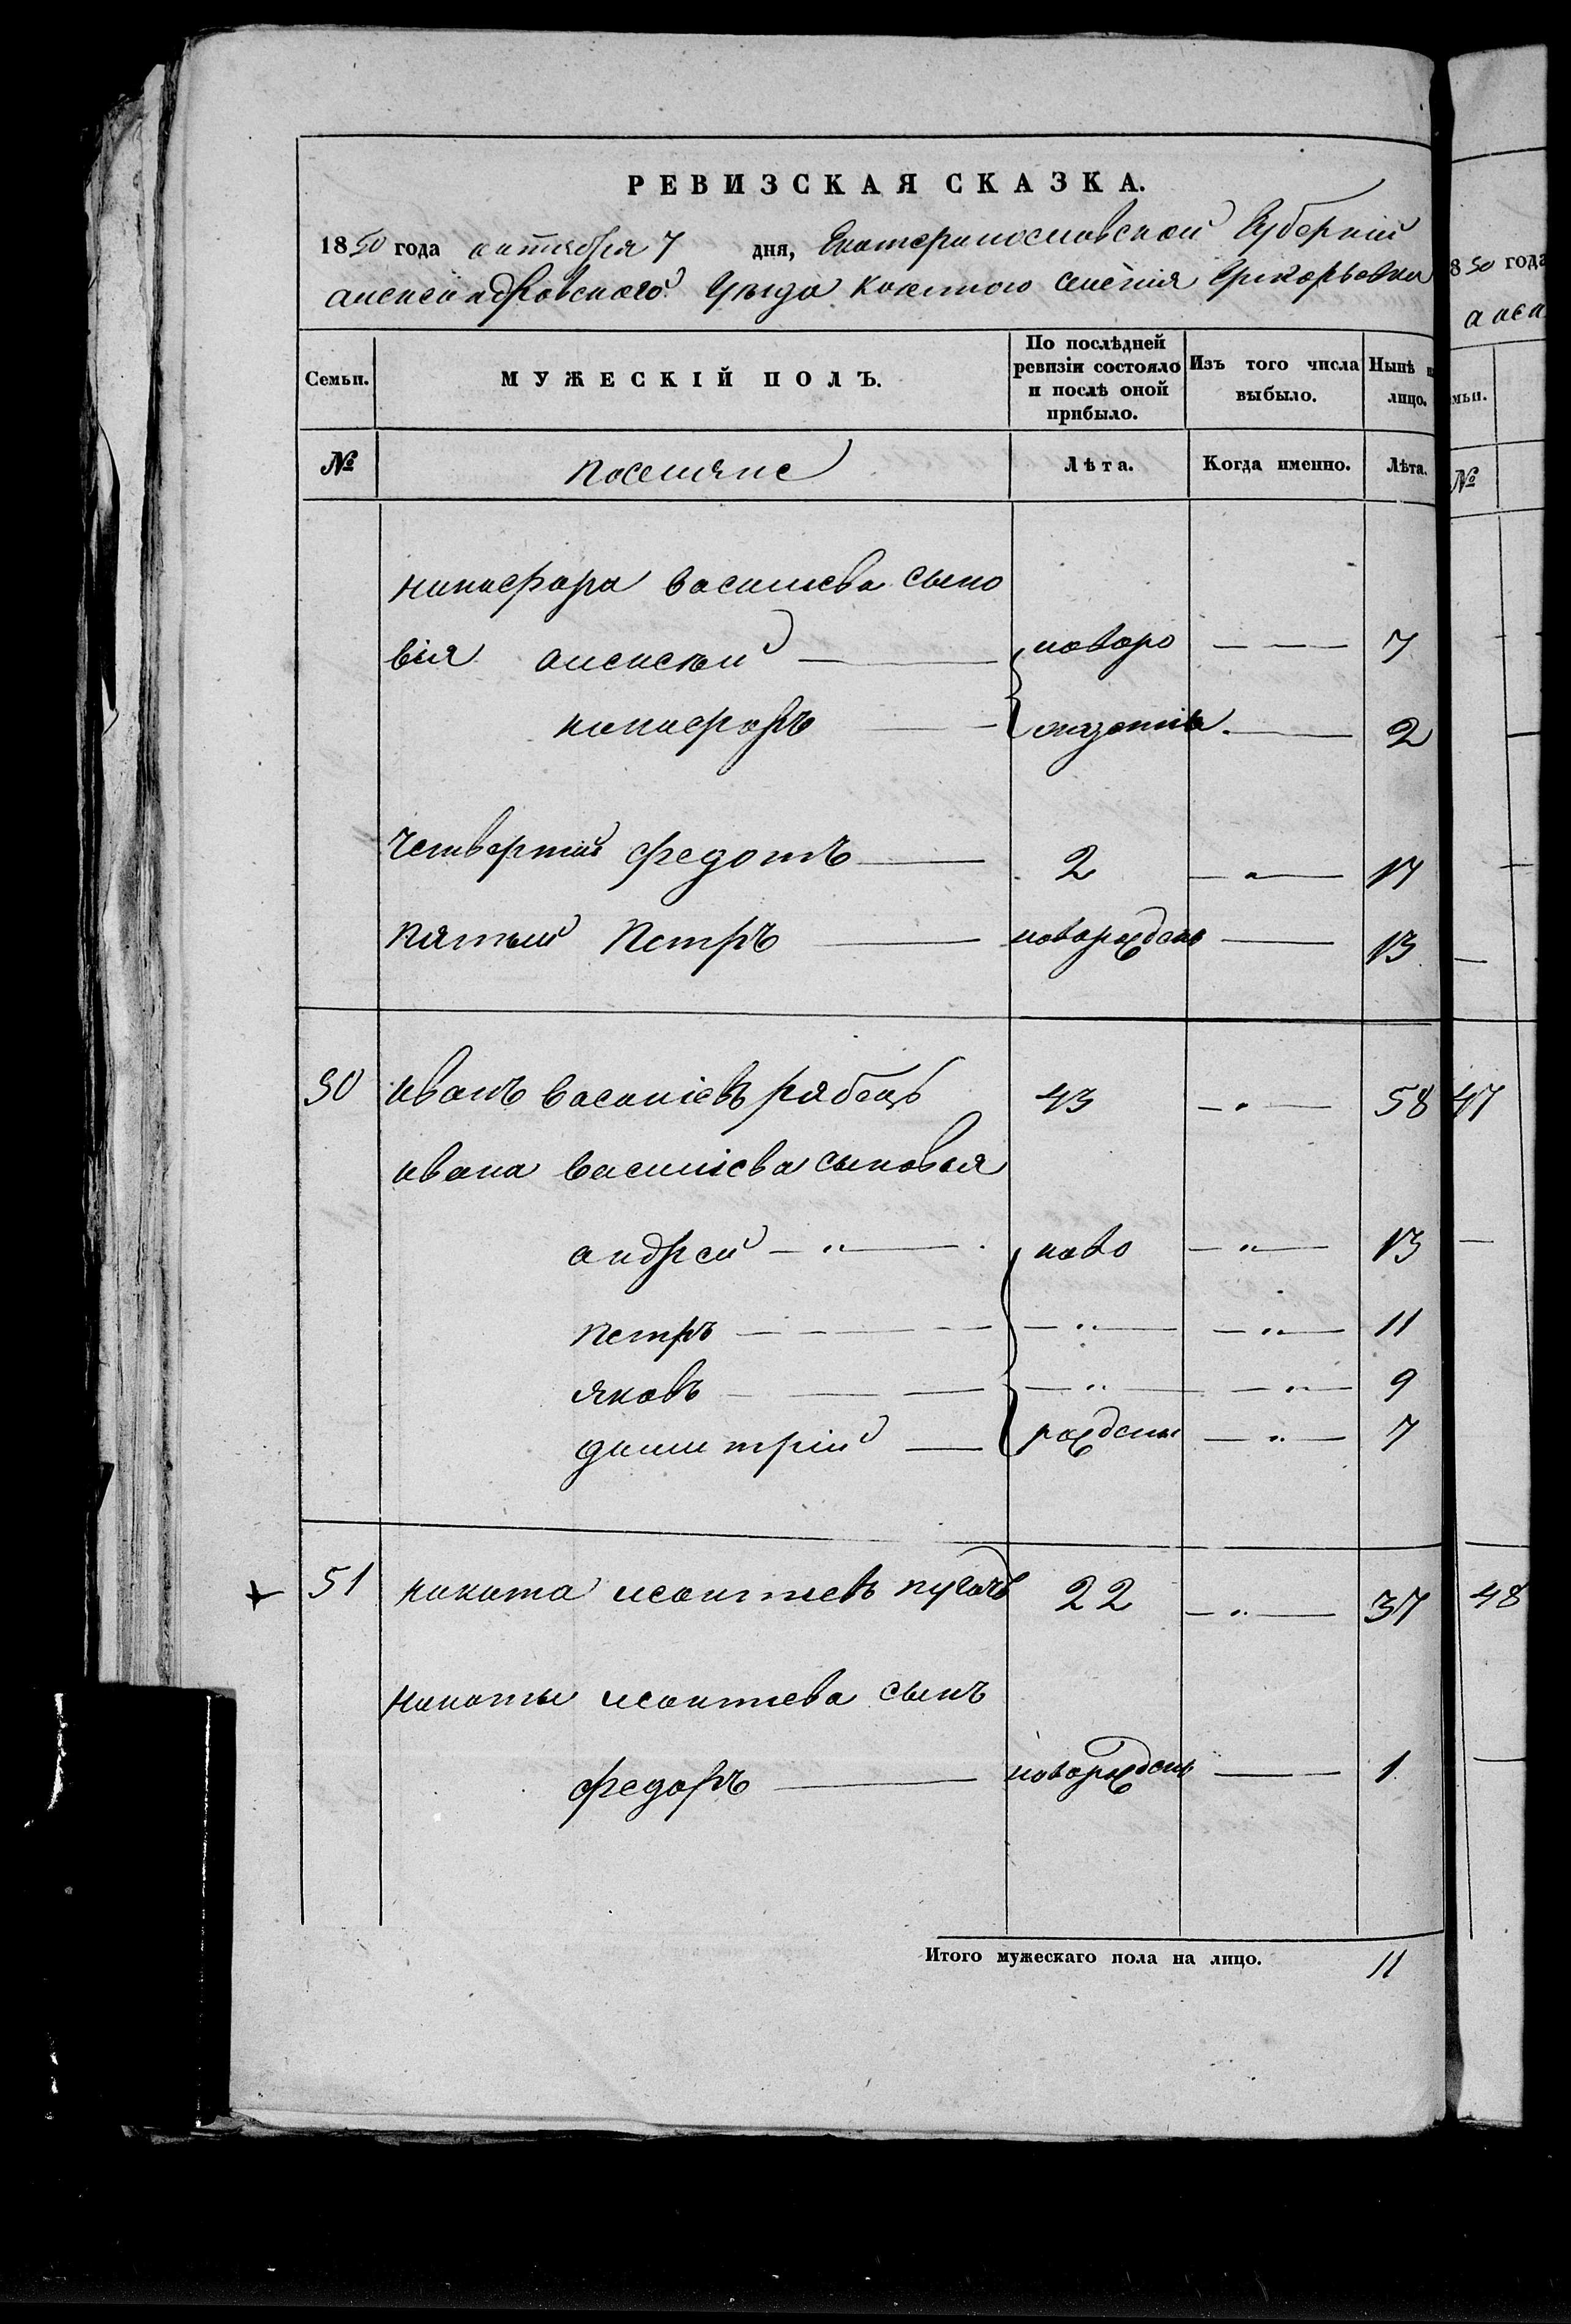 РЕВИЗСКАЯ СКАЗКА.
1850 года октября 7 дня, Екатеринославской Губерніи
александровского Уезда казенного селения Григорьовка
Семьи. МУЖЕСКІЙ ПОЛЪ. По послѣдней ревизіи состояло и послѣ оной прибыло. Изъ того числа выбыло. Нынѣ на лицо.
№ поселяне Лѣта. Когда именно. Лѣта.
никифора василиева сыно
вія алексѣй новоро 7
никифоръ 2
четвертый федотъ 2 17
пятый Петръ новорожден 13
50 иванъ василіевъ рябецъ 43 58
ивана василіева сыновья
андрей ново 13
петръ 11
яковъ 9
димитрій рождены 7
51 никита леонтиевъ пугачъ 22 37
никиты леонтиева сынъ
федоръ новорожденъ 1
Итого мужескаго пола на лицо. 11
850 года
алек
мьи.
№
47
48